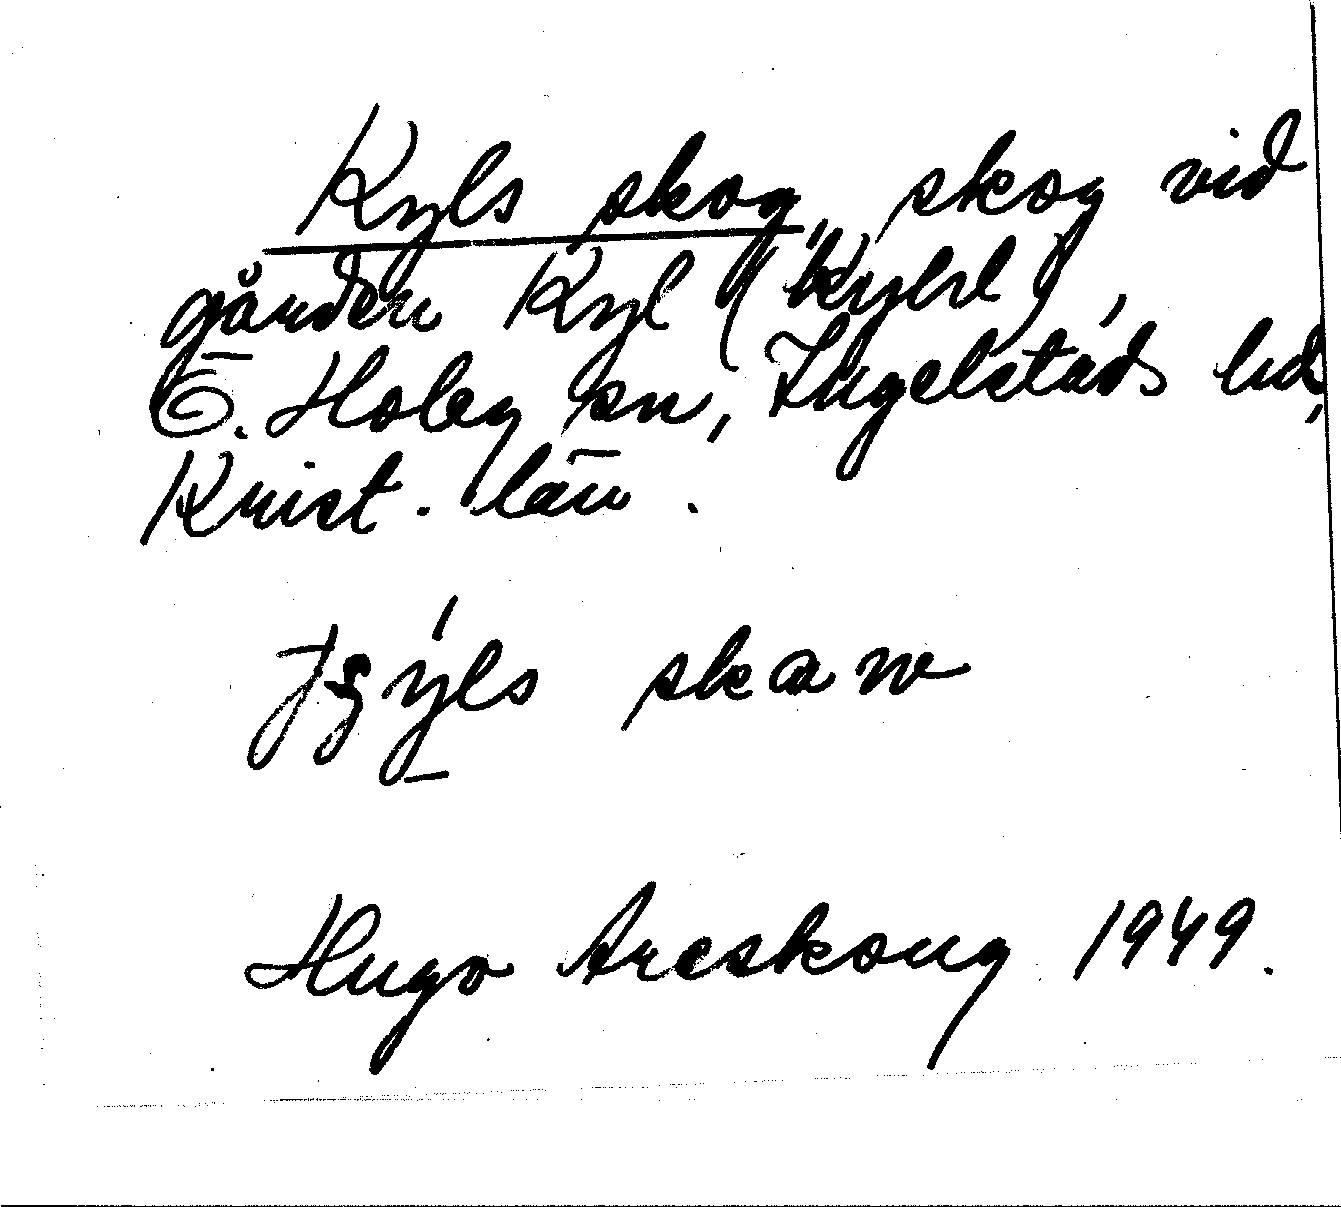 Kyls skog, skog vid
gården Kyl (Kyhl),
Ö. Hoby sn, Ingelstads hd,
Krist. län.
skaw
Hugo Areskoug 1949.